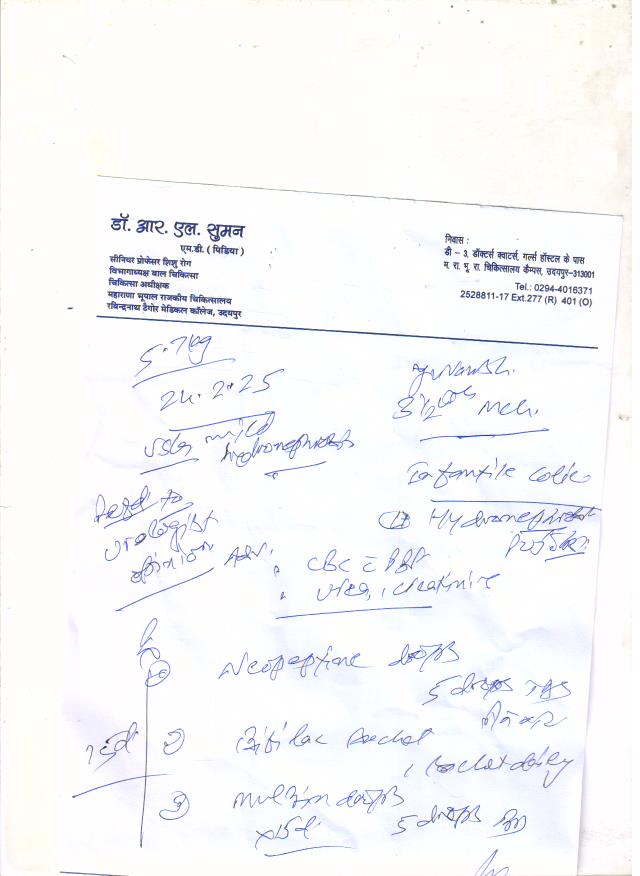 डॉ. आर. एल. सुमन
एम.डी. ( पिडिया )
सीनियर प्रोफेसर शिशु रोग
विभागाध्यक्ष बाल चिकित्सा
चिकित्सा अधीक्षक
महाराणा भूपाल राजकीय चिकित्सालय
रविन्द्रनाथ टैगोर मेडिकल कॉलेज, उदयपुर
निवास :
डी – 3, डॉक्टर्स क्वाटर्स, गर्ल्स हॉस्टल के पास
म. रा. भू. रा. चिकित्सालय कैम्पस, उदयपुर–313001
Tel.: 0294-4016371
2528811-17 Ext.277 (R) 401 (O)
5.7kg
24.2.25
3½
mch.
USG mild
hydronephrosis
Infantile colic
Hydronephrosis
Refd to
urologist
opinion
Adv.
CBC c PBF
urea, creatinine
① Neopeptine drops
5 drops TDS
②
sachet
1 sachet daily
③
drops
5 drops